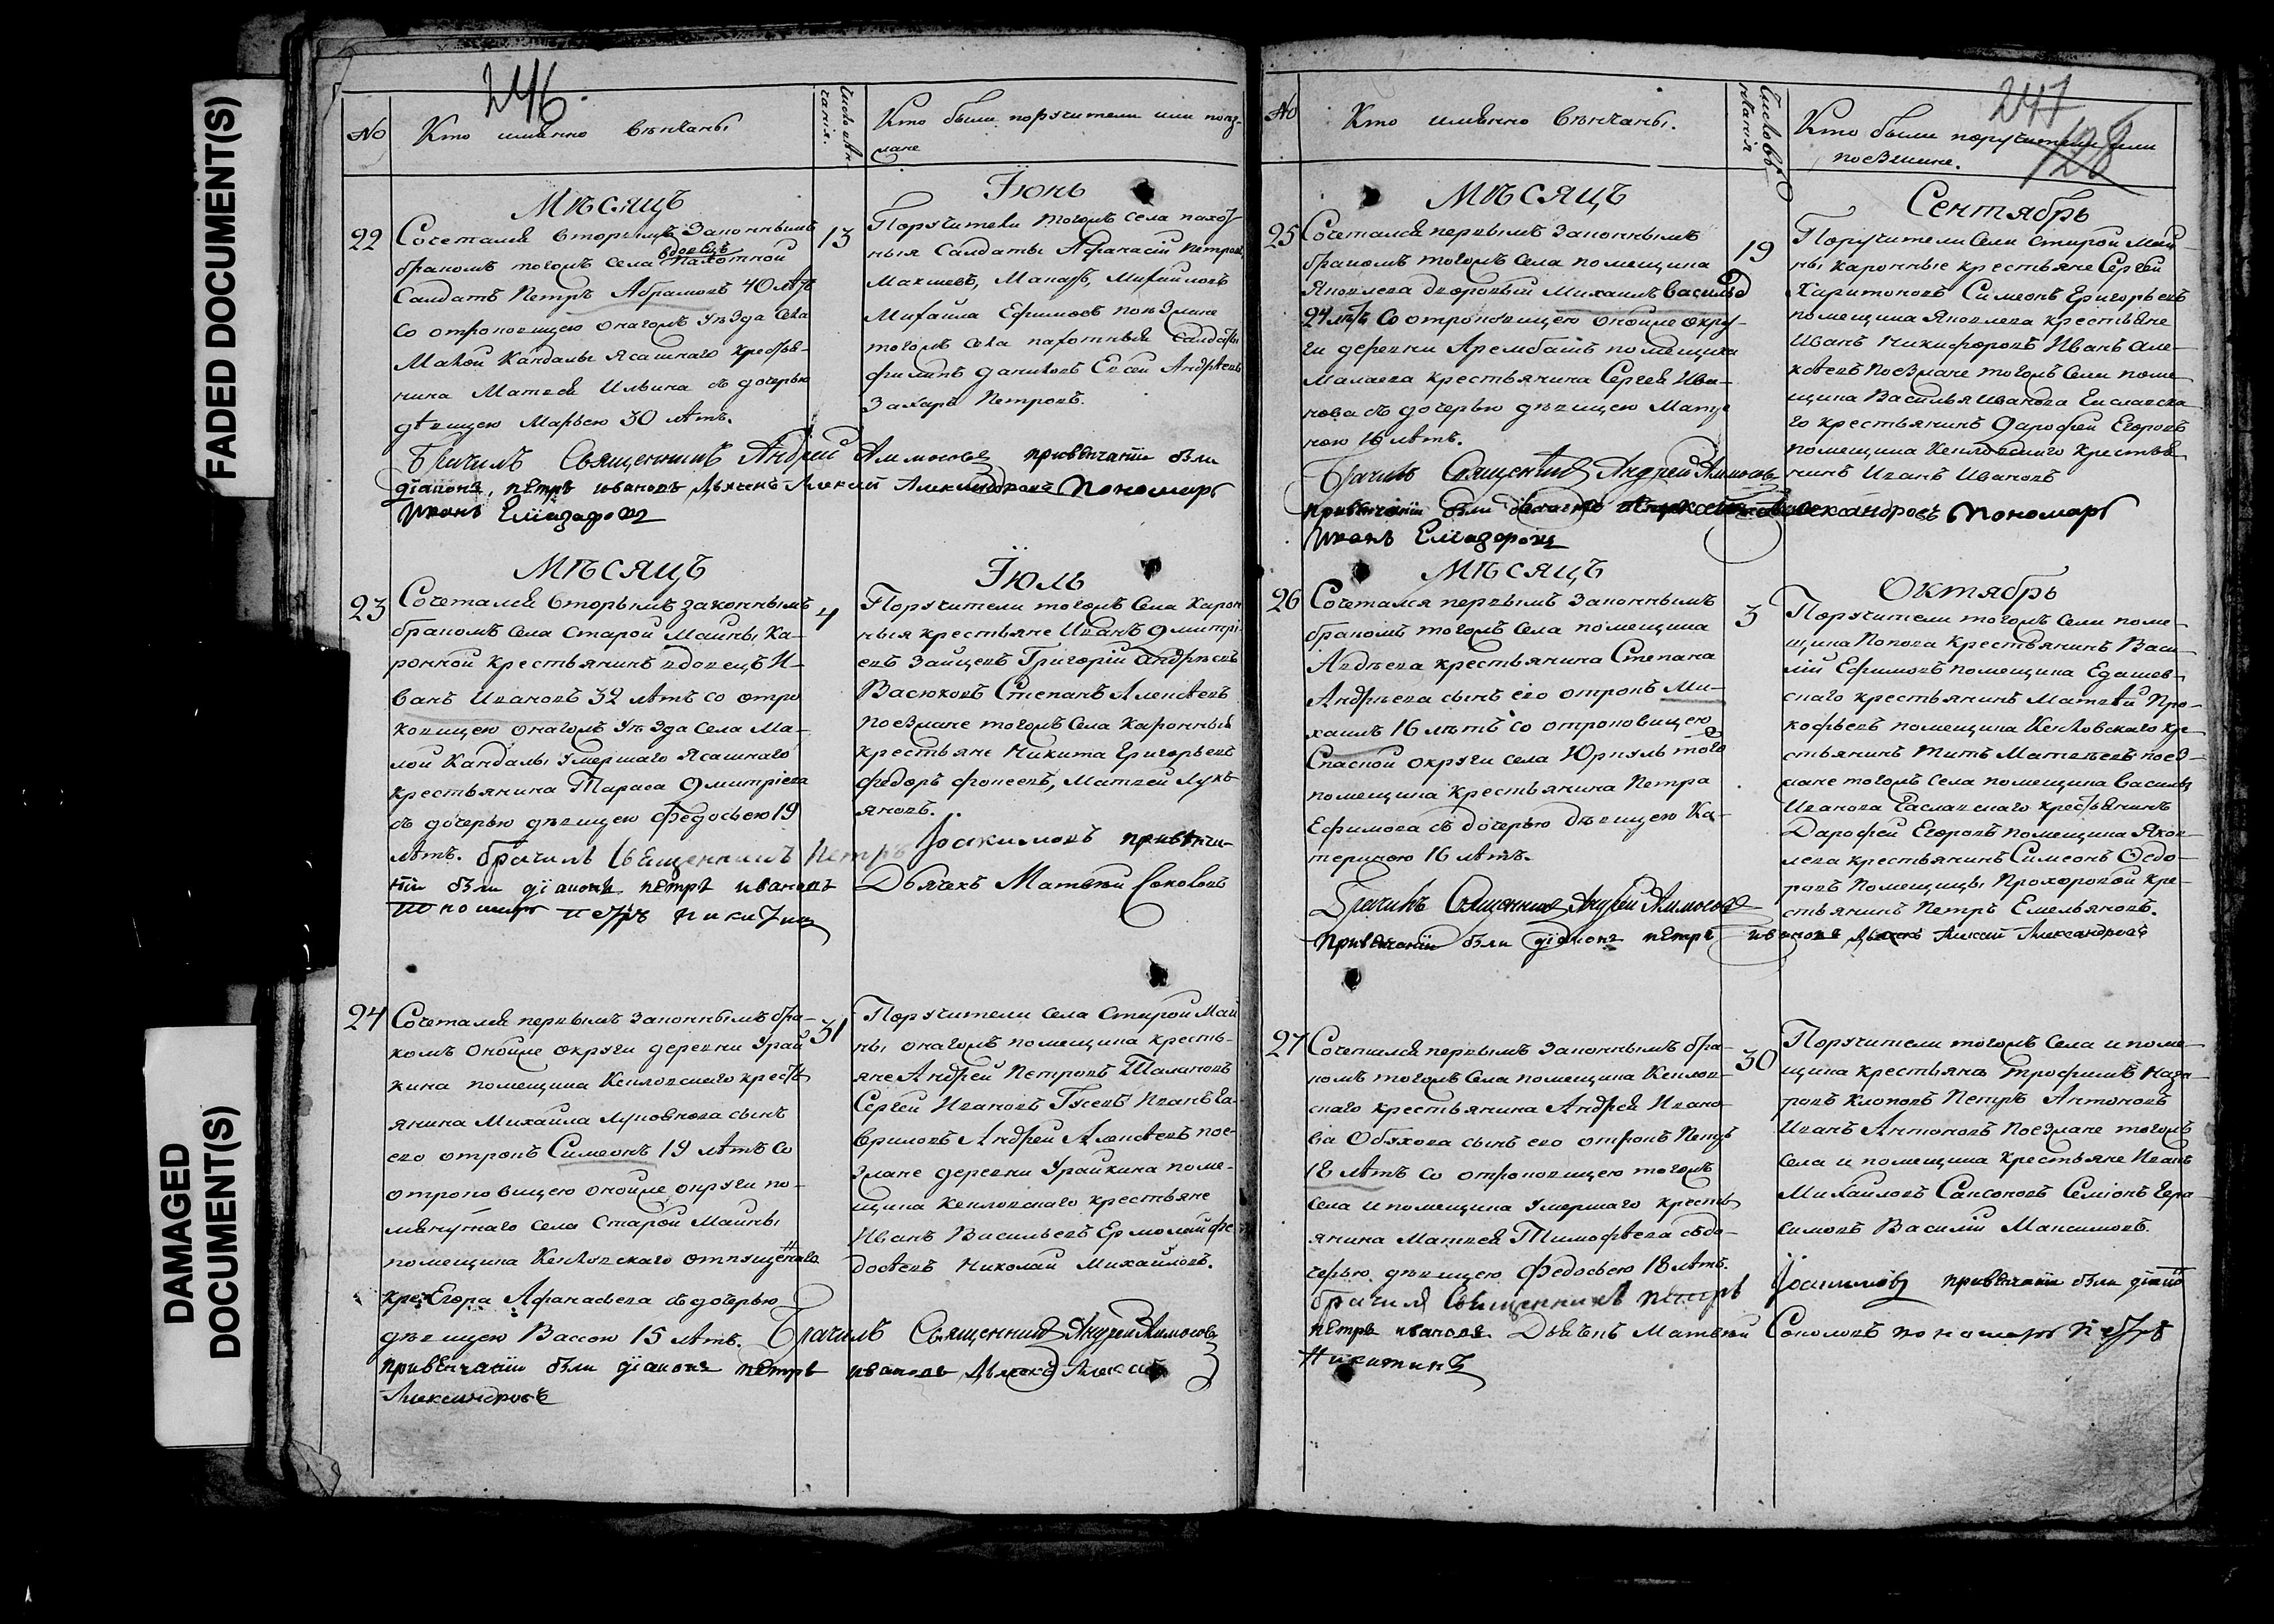 FADED DOCUMENT(S)
DAMAGED
DOCUMENT(S)
246.
№
Кто имянно венчаны
Число вен-
чанія.
Кто были поручители или поез-
жане
Мѣсяцъ
Іюнь
22
Сочетался вторымъ законнымъ
вдовецъ
бракомъ тогожъ села пахотной
Салдатъ Петръ Абрамовъ 40 лѣтъ
со отроковицею онагожъ уѣзда села
Малой Кандалы ясашнаго крестья-
нина Матвея Ильина съ дочерью
дѣвицею Марьею 30 лѣтъ.
13
Поручители тогожъ села пахот-
ныя Салдаты Афанасій Петровъ
Макаръ Михайловъ
Михайла Ефимовъ поезжане
тогожъ села пахотныя Салдаты
Филипъ Даниловъ Евсей Андреевъ
Захаръ Петровъ.
Брачилъ Священникъ Андрей Алмосовъ привенчаніи были
діаконъ петръ ивановъ Дьячекъ Алексей Александровъ Пономарь
Иванъ
Мѣсяцъ
Іюль
23
Сочетался вторымъ законнымъ
бракомъ села Старой Майны ка-
ронной крестьянинъ вдовецъ И-
ванъ Ивановъ 32 лѣтъ со отро
ковицею онагожъ уѣзда села Ма-
лой Кандалы умершаго ясашнаго
крестьянина Тараса Дмитріева
съ дочерью дѣвицею Федосьею 19
лѣтъ. брачилъ Священникъ Петръ Іоакимовъ привѣнча-
4
Поручители тогожъ села карон
ныя крестьяне Иванъ Дмитрі
евъ Зайцевъ Григорій Андреевъ
Васюковъ Степанъ Алексѣевъ
поезжане тогожъ села каронныя
крестьяне Никита Григорьевъ
Федоръ Фокеевъ, Матвей Лукь-
яновъ.
ніи были діаконъ петръ ивановъ Дьячекъ Матвѣй Соколовъ
пономарь петръ никитинъ
24
Сочетался первымъ законнымъ бра-
комъ онойже округи деревни Урай
кина помещика Кепловскаго кресть
янина Михайла сынъ
его отрокъ Симеонъ 19 лѣтъ со
отроковицею онойже округи по-
мянутаго села Старой Майны
помещика Кепловскаго отпущеннаго
кре: Егора Афанасьева съ дочерью
дѣвицею Вассою 15 лѣтъ. Брачилъ Священникъ Андрей Алмосовъ
31
Поручители села Старой Май
ны онагожъ помещика кресть-
яне Андрей Петровъ Талановъ
Сергей Ивановъ Гусевъ Иванъ Га-
вриловъ Андрей Алексѣевъ пое-
зжане деревни Урайкина поме-
щика Кепловскаго крестьяне
Иванъ Васильевъ Ермолай Фе
досѣевъ Николай Михайловъ.
привенчаніи были діаконъ петръ ивановъ Дьячекъ Алексей
Александровъ
247
128
№
Кто имянно венчаны.
Число вен
чанія
Кто были поручители или
поезжане.
Мѣсяцъ
Сентябрь
25
Сочетался первымъ законнымъ
бракомъ тогожъ села помещика
Яковлева дворовый Михаилъ Васильевъ
24 лѣтъ со отроковицею онойже окру-
ги деревни Арембашъ помещика
Малаева крестьянина Сергея Ива-
нова съ дочерью дѣвицею Матре
ною 16 лѣтъ.
19
Поручители села Старой Май
ны каронные крестьяне Сергей
Харитоновъ Симеонъ Григорьевъ
помещика Яковлева крестьяне
Иванъ Никифоровъ Иванъ Але-
ксѣевъ поезжане тогожъ села поме
щика Василья Иванова
го крестьянинъ Дарофей Егоровъ
помещика Кепловскаго крестья
нинъ Иванъ Ивановъ
Брачилъ Священникъ Андрей Алмосовъ
привенчаніи были Александровъ Пономарь
Иванъ
Мѣсяцъ
Октябрь
26
Сочетался первымъ законнымъ
бракомъ тогожъ села помещика
Авдѣева крестьянина Степана
Андрѣева сынъ его отрокъ Ми-
хаилъ 16 лѣтъ со отроковицею
Спаской округи села Юркуль того
помещика крестьянина Петра
Ефимова съ дочерью дѣвицею Ка-
териною 16 лѣтъ.
3
Поручители тогожъ села поме-
щика Попова крестьянинъ Васи-
лій Ефимовъ помещика
скаго крестьянинъ Матвѣй Про-
кофьевъ помещика Кепловскаго кре-
стьянинъ Титъ Матвѣевъ поез-
жане тогожъ села помещика Василья
Иванова крестьянинъ
Дарофей Егоровъ помещика Яков-
лева крестьянинъ Симеонъ Федо-
ровъ помещицы Прохоровой кре-
стьянинъ Петръ Емельяновъ.
Брачилъ Священникъ Андрей Алмосовъ
привенчаніи были діаконъ петръ ивановъ Дьячекъ Алексей Александровъ
27
Сочетался первымъ законнымъ бра-
комъ тогожъ села помещика Кеплов-
скаго крестьянина Андрея Ивано-
ва Обухова сынъ его отрокъ Петръ
18 лѣтъ со отроковицею тогожъ
села и помещика умершаго кресть
янина Матвея Тимофѣева съ до-
черью дѣвицею Федосьею 18 лѣтъ.
30
Поручители тогожъ села и поме-
щика крестьяне Трофимъ Наза-
ровъ Клоповъ Петръ Антоновъ
Иванъ Антоновъ поезжане тогожъ
села и помещика крестьяне Иванъ
Михайловъ Сапсоновъ Семіонъ Гера-
симовъ Василій Максимовъ.
брачилъ Священникъ петръ Іоакимовъ привенчаніи были діако
петръ ивановъ Дьячекъ Матвѣй Соколовъ пономарь петръ
Никитинъ